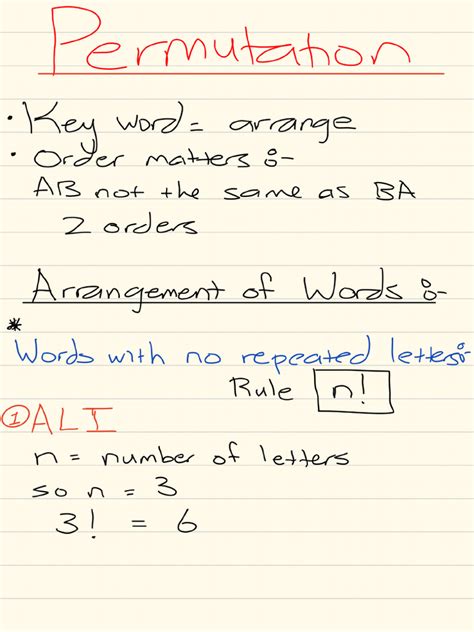 Permutation
• Key word = arrange
• Order matters :-
AB not the same as BA
2 orders
Arrangement of Words :-
*
Words with no repeated letters:-
Rule n!
① ALI
n = number of letters
so n = 3
3! = 6